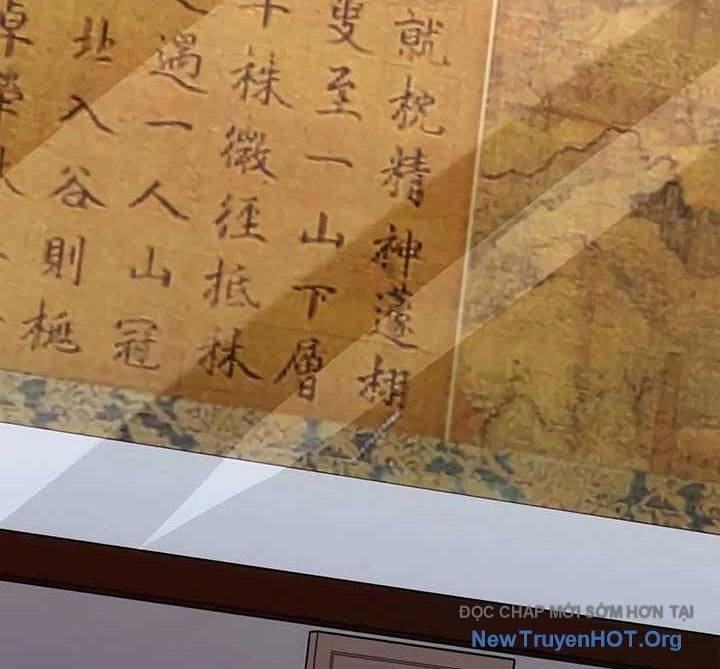 就枕精神蘧栩
叟至一山下層
十株微徑抵林
遇一人山冠
北入谷則桃
ĐỌC CHAP MỚI SỚM HƠN TẠI
NewTruyenHOT.Org